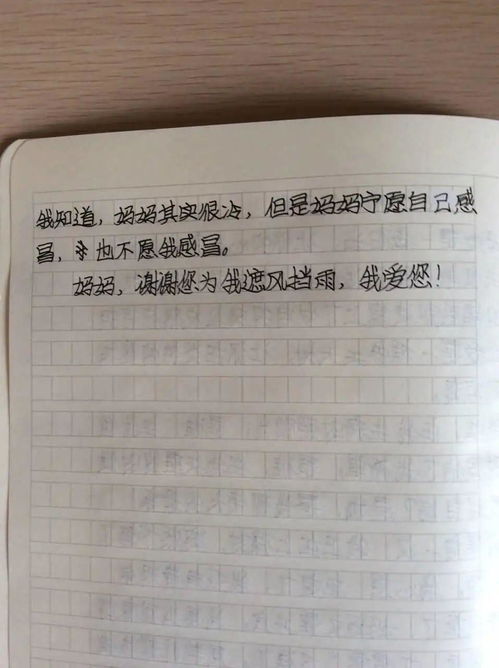 我知道，妈妈其实很冷，但是妈妈宁愿自己感
冒，也不愿我感冒。
妈妈，谢谢您为我遮风挡雨，我爱您！